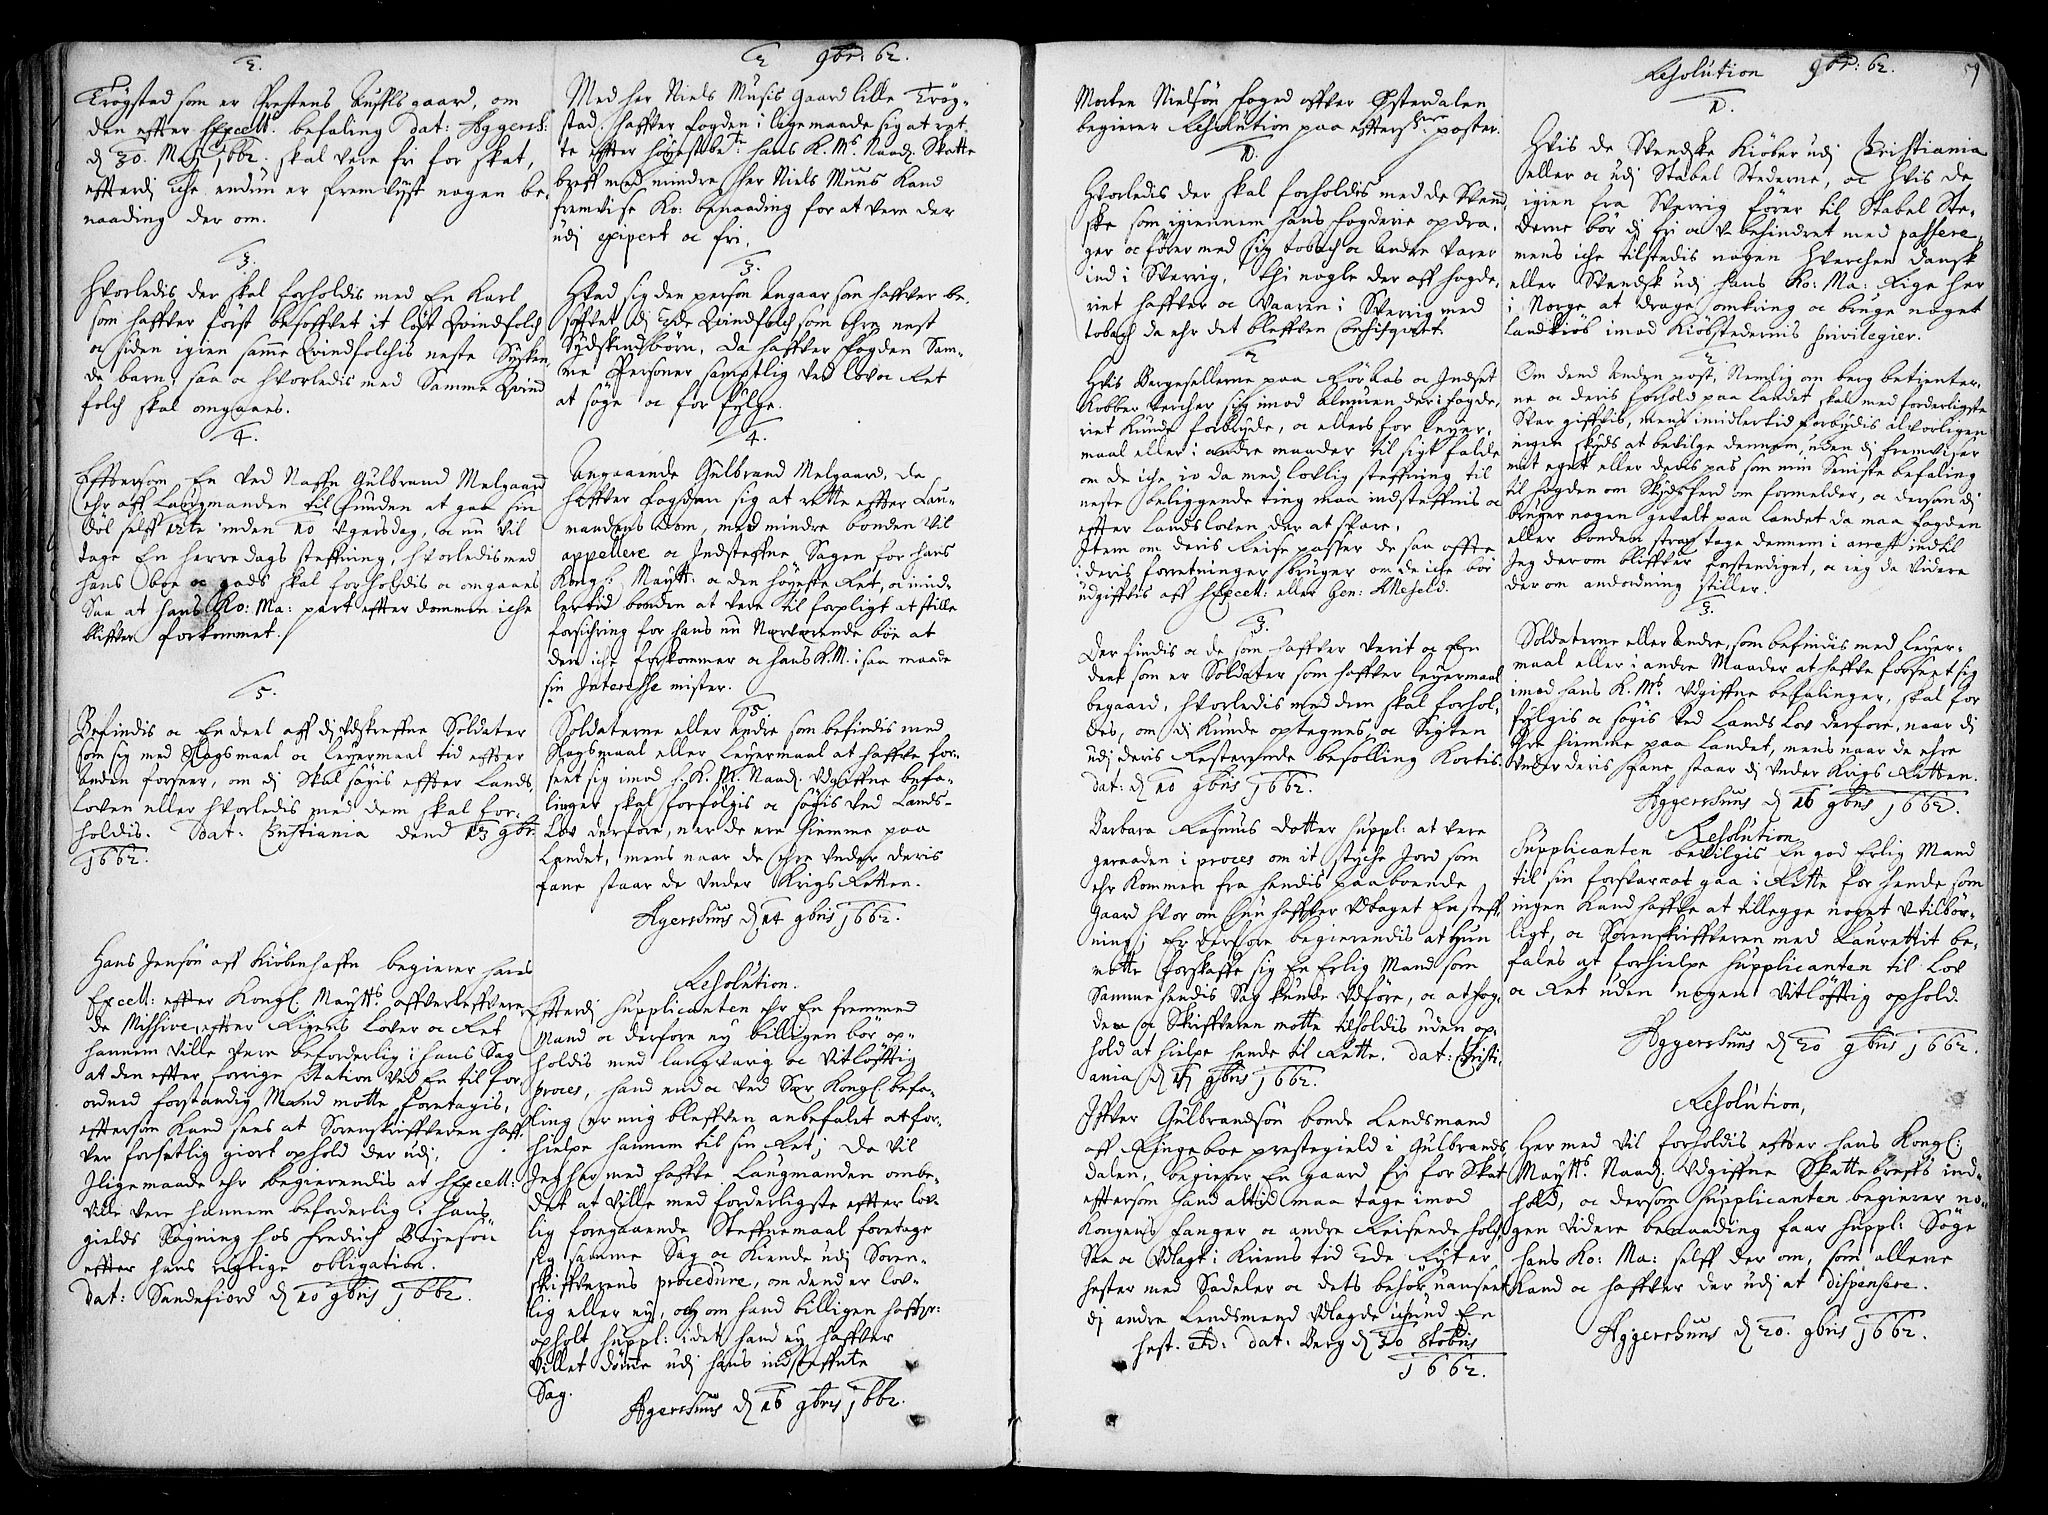 2.
Trögstad som er Prestens Aufls gaard, om
den effter hExcell: befaling dat: Aggersh:
d 30. Maj 1662. skal vere fri for skat,
efterdj iche endnu er fremvijst nogen be-
naading der om.
3.
Hvorledis der skal forholdis med En Karl
som haffver först besoffvet it löst Qvindfolch
oc siden igien samme Qvindfolchis neste Sysken
de barn, saa oc hvorledis med Samme Qvind
folch skal omgaaes.
4.
Effterson En ved Naffn Gulbrand Melgaard
ehr aff Laugmanden til funden at gaa sin
Döl selff 12te inden 10 Ugersdag, oc nu vil
tage En herredags steffning, hvorledis med
hans boe oc gods skal forholdis oc omgaaes
Saa at hans Ko: Ma: part effter dommen iche
bliffver forkommet.
5.
Befindis oc En deel aff dj Udskreffne Soldater
som sig med Slagsmaal oc Leyermaal tid effter
anden forseer, om dj skal søgis effter Lands
Loven eller hvorledis med dem skal for-
holdis. Dat: Christiania dend 13 9br.
1662.
Hans Jensön aff Kiöbenhaffn begierer hans
Excell: effter Kongl: Maytts offverleffvere
de Missive, effter Rigens Lover oc Ret
hannem ville vere beforderlig i hans Sag
at den effter forrige Citation ved En til for
ordned forstandig Mand motte foretagis,
effterson Kand sees at Sorenskriffveren haff
ver forsetlig giort ophold der udj.
Jligemaade ehr begierendis at hExcell:
ville vere hannem beforderlig i hans
gields Søgning hos Fredrich Böyesön
effter hans rigtige obligation.
dat: Sandefiord d 10 9bris 1662.
2 9br: 62.
Med her Niels Muus gaard lille Trög-
stad. haffver fogden i lige maade sig at ret-
te effter höyestbete hans K. Ms Naad. Skatte
breff med mindre her Niels Muus Kand
fremvise Ko: benaading for at vere der
udj exipert oc fri.
3.
Hvad sig den person angaar som haffver be-
soffvet dj 2de Qvindfolch som ehre nest
Sydskindbörn, da haffver fogden Sam-
me Personer samptlig ved lov oc Ret
at søge oc for fylge.
4.
Angaaende Gulbrand Melgaard, da
haffver fogden sig at rette effter Lau-
mandens dom, med mindre bonden vil
appellere oc Indsteffne Sagen for hans
Kongl: Maytt: oc den höyeste Ret, oc imid-
lertid bonden at vere til forpligt at stille
forsichring for hans nu Nærværende boe at
den iche forkommer oc hans K. M. i saa maade
sin Interesse mister.
5
Soldaterne eller Andre som befindis med
Slagsmaal eller Leyermaal at haffve for-
seet sig imod h. K. M. Naad. Udgiffne befa-
linger skal forfölgis oc søgis ved Lands-
Lov derfore, nar de ere hiemme paa
Landet, mens naar de ehre under deris
fane staar de under Krigs Retten.
Agershuus d 14 9bris 1662.
Resolution.
Efterdj Supplicanten ehr En fremmed
Mand oc derfore ey billigen bör op-
holdis med langvarig oc vitlöfftig
proces, hand end oc ved Sær Kongl: befa-
ling er mig bleffven anbefalet at for-
hielpe hannem til sin Ret; Da vil
Jeg her med haffve Laugmanden ombe-
det at ville med forderligste effter lov-
lig foregaaende Steffnemaal foretage
sig samme Sag oc Kiende udj Soren-
skriffverens procedure, om dend er lov-
lig eller ey, oc om hand billigen haffver
opholt Suppl: i det hand ey haffver
villet dömme udj hans indsteffnte
Sag.
Agershuus d 16 9bris 1662.
Morten Nielsön foged offver Østerdalen
begierer Resolution paa effterskrne poster.
1.
Hvorledis der skal forholdis med de Svend
ske som igiennem hans fogderie opdra-
ger oc förer med sig tobach oc andre varer
ind i Sverrig, thi nogle der aff fogde-
riet haffver oc vaaren i Sverrig med
tobach da ehr det bleffven Confisqvert.
2
Hvis Bergesellerne paa Rör Aas oc Indset
Kobber Vercher sig imod Almuen der i fogde-
riet Kunde forbryde, oc ellers for leyer-
maal eller i andre maader til sigt falde
om de iche io da med lovlig steffning til
neste beliggende ting maa indsteffnis oc
effter Landsloven der at svare.
Item om deris Reise passer de saa offte
i deris forretninger bruger om de iche bör
udgiffvis aff hExcell: eller Gen: Allefeld.
3.
Der findis oc de som haffver verit oc Een
deel som er Soldater som haffver leyermaal
begaaed, hvorledis med dem skal forhol-
des, om dj Kunde optegnes, oc Sigten
udj deris Resterende besolling Kortis.
dat: d 10 9bris 1662.
Barbara Rasmus dotter Suppl: at vere
geraaden i proces om it styche Jord som
ehr Kommen fra hendis paaboende
gaard hvor om hun haffver Udtaget En steff-
ning; Er derfore begierendis at hun
motte forskaffe sig En Erlig Mand som
Samme hendis Sag kunde Udföre, oc at fog-
den oc Skriffveren motte tilholdis uden op-
hold at hielpe hende til Rette. Dat: Christi-
ania d 17 9bris 1662.
Iffver Gulbrandsön bonde Lendsmand
aff Ringeboe prestegield i Gulbrands
dalen, begierer En gaard fri for Skat
effterson hand altid maa tage imod
Kongens fanger oc andre Reisende folch
Saa oc Udlagt i Kriens tid 2de Ryter
hester med Sadeler oc dets behör uanseet
dj andre Lendsmend Udlagde ichun En
hest. etc: dat: Berg d 30 8tobris
1662.
Resolution 9br: 62. 7
1.
Hvis de Svendske Kiöber udj Christiania
eller oc udj Stabel Stederne, oc hvis de
igien fra Sverrig förer til Stabel Ste-
derne bör dj fri oc ubehindret med passere,
mens iche tilstedis nogen hverchen dansk
eller Svendsk udj hans Ko: Ma: Rige her
i Norge at drage omkring oc bruge noget
Landkiöb imod Kiöbstedernis privilegier.
2
Om dend Anden post, Nemlig om berg betienter-
ne oc deris forhold paa Landet skal med forderligste
Svar giffvis, mens imidlertid forbydis alvorligen
ingen skyds at bevilge dennem, uden dj fremviser
mit eget eller deris pas som min Seniste befaling
til fogden om Skydsferd om formelder, oc dersom dj
bruger nogen gevalt paa Landet da maa fogden
eller bonden strax tage dennem i arrest indtil
Jeg derom bliffver forstendiget, oc ieg da videre
der om andordning stiller.
3.
Soldaterne eller Andre, som befindis med Leyer-
maal eller i andre Maader at haffve forseet sig
imod hans K. Ms. Udgiffne befalinger, skal for
fylgis oc søgis ved Lands Lov derfore, naar dj
ehre hiemme paa Landet, mens naar de ehre
under deris fane staar dj under Krigs Retten.
Aggershuus d 16 9bris 1662.
Resolution
Supplicanten bevilgis En god Erlig Mand
til sin forsvar at gaa i Rette for hende som
ingen Kand haffve at tillegge noget utilbör-
ligt, oc Sorenskriffveren med Laurettit be-
fales at forhielpe Supplicanten til Lov
oc Ret uden nogen vitlöfftig ophold.
Aggershuus d 20 9bris 1662.
Resolution,
Her med vil forholdis effter hans Kongl:
Maytts. Naad. Udgiffne Skattebreffs ind-
hold, oc dersom Supplicanten begierer no-
gen videre benaading faar Suppl: Søge
hans Ko: Ma: selff der om, som allene
Kand oc haffver der udj at dispensere.
Aggershuus d 20. 9bris 1662.